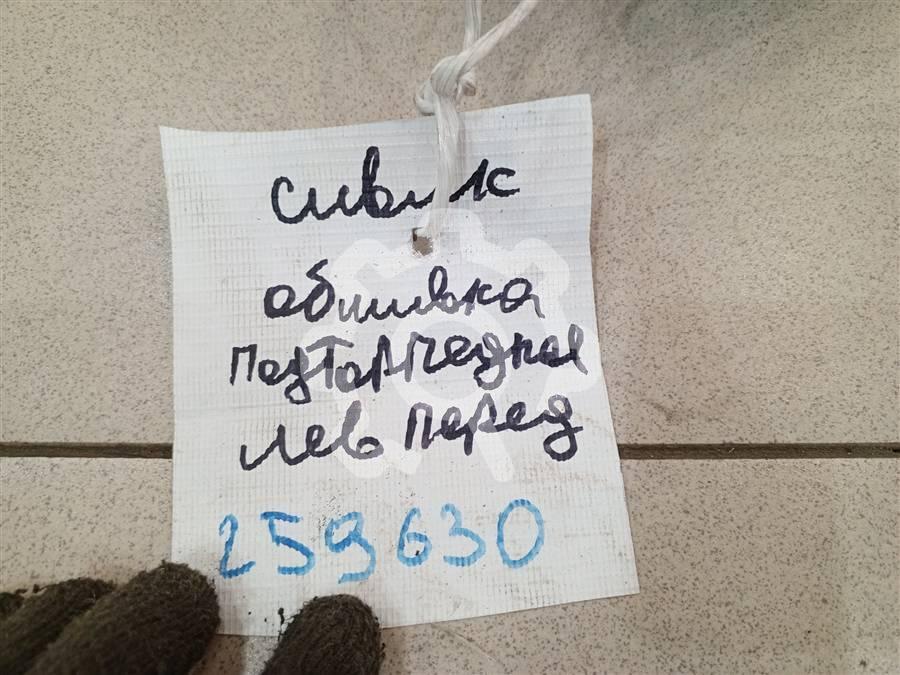 Сивик
обшивка
Подторпедная
лев перед
259630